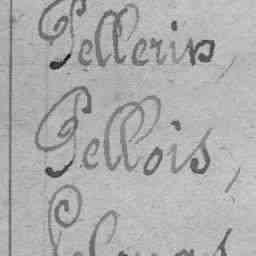 Pellerin,
Pellois,